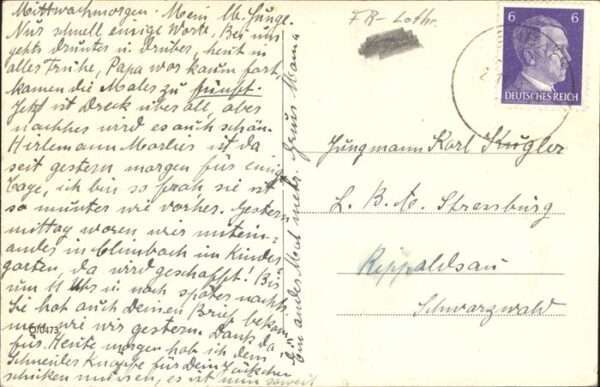 Mittwochmorgen. Mein lb. Junge.
Nur schnell einige Worte. Bei uns
gehts drunter u. drüber, heut in
aller Frühe, Papa war kaum fort,
kamen die Maler zu fünft.
Jetzt ist Dreck überall aber
nachher wird es auch schön.
Hirlemann Marlies ist da
seit gestern morgen für einige
Tage, ich bin so froh sie ist
so munter wie vorher. Gestern
mittag waren wir mitein-
ander in Climbach im Kinder
garten, da wird geschafft! Bis
um 11 Uhr u. noch später nachts
Sie hat auch Deinen Brief bekom
men wie wir gestern. Dank da
für. Heute morgen hab ich dem
Schneider Knöpfe für dein
schicken müssen, es ist nun soweit
Ein ander Mal mehr. Gruss Mama
FR-Lothr.
6 6
DEUTSCHES REICH
Jungmann Karl Kugler
L. B. A. Strassburg
Rippoldsau
Schwarzwald